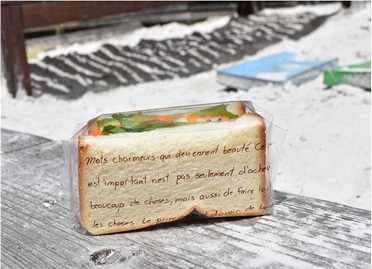 Mots charmeurs qui deviennent beauté Ce
est important n'est pas seulement d'ache
beaucoup de choses, mais aussi de faire to
les choses. Le d'avoir de